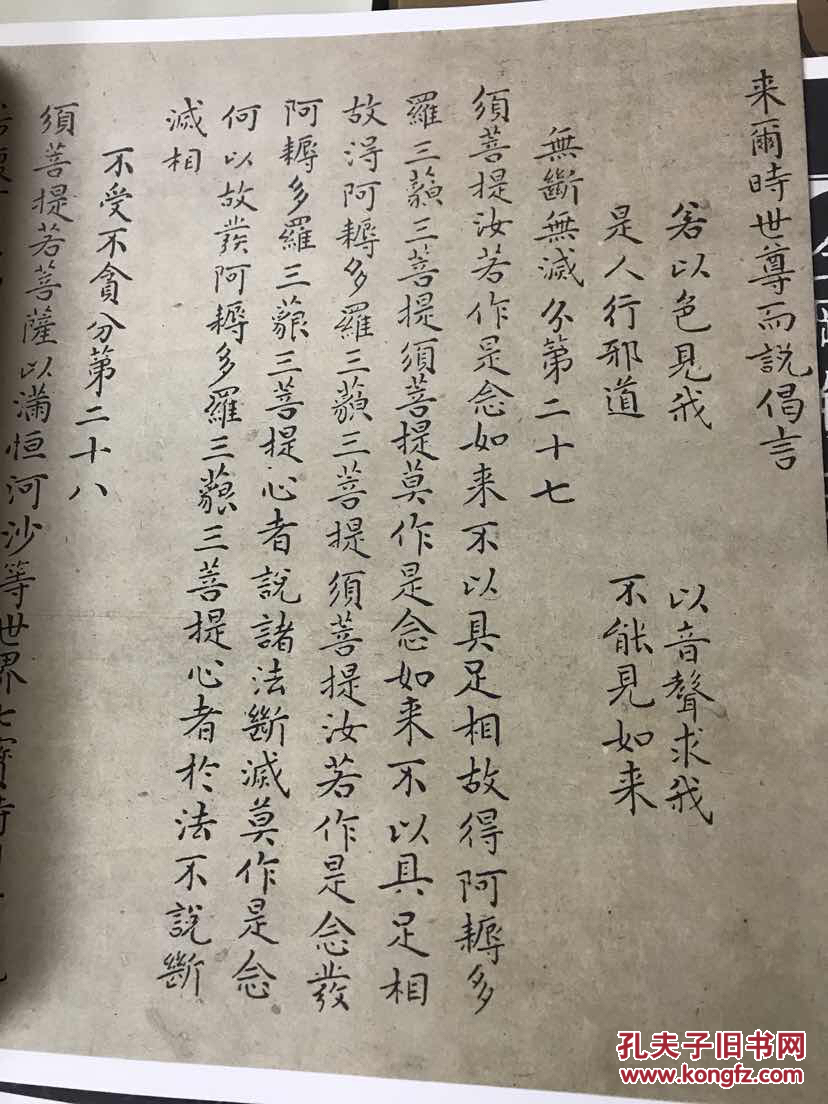 来爾時世尊而說偈言
若以色見我 以音聲求我
是人行邪道 不能見如来
無斷無滅分第二十七
須菩提汝若作是念如来不以具足相故得阿耨多
羅三藐三菩提須菩提莫作是念如来不以具足相
故得阿耨多羅三藐三菩提須菩提汝若作是念發
阿耨多羅三藐三菩提心者說諸法斷滅莫作是念
何以故發阿耨多羅三藐三菩提心者於法不說斷
滅相
不受不貪分第二十八
須菩提若菩薩以滿恒河沙等世界七寶
孔夫子旧书网
www.kongfz.com